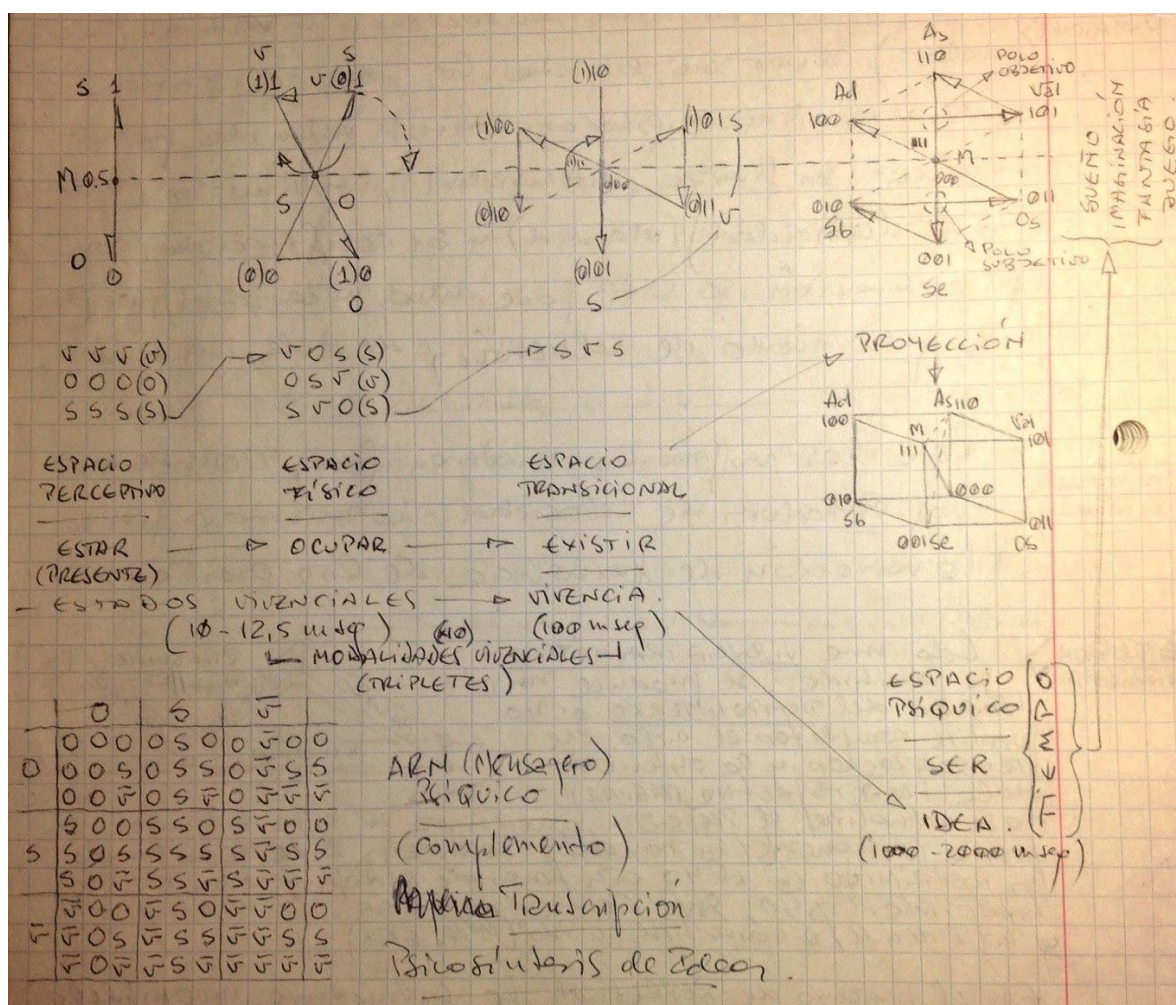 S 1
M 0.5
O 0
v s
(1)1 v (0)1
S O
(0)0 (1)0
O
(1)10
(1)00 (1)01 S
(0)10 (0)11 v
(0)01
S
As
110
POLO OBJETIVO
Ad Val
100 101
111 M
000
010 011
Sb Os
001
Se
POLO SUBJETIVO
SUEÑO
IMAGINACIÓN
FANTASÍA
v v v (v) v o s (s) s v s
o o o (o) o s v (v)
s s s (s) s v o (s)
PROYECCIÓN
Ad As 110 Val
100 M 101
111
000
010 011
Sb 001 Se Os
ESPACIO ESPACIO ESPACIO
PERCEPTIVO FÍSICO TRANSICIONAL
ESTAR OCUPAR EXISTIR
(PRESENTE)
- ESTADOS VIVENCIALES VIVENCIA.
(10 - 12,5 mseg) (x10) (100 mseg)
MODALIDADES VIVENCIALES
(TRIPLETES)
ESPACIO
PSÍQUICO
SER
IDEA.
(1000 - 2000 mseg)
O S v
O O O O S O O v O O
O O O S O S S O v S S
O O v O S v O v v v
S O O S S O S v O O
S S O S S S S S v S S
S O v S S v S v v v
v O O v S O v v O O
v v O S v S S v v S S
v O v v S v v v v v
ARN (Mensajero)
PSÍQUICO
(complemento)
Transcripción
Psicosíntesis de Ideas.